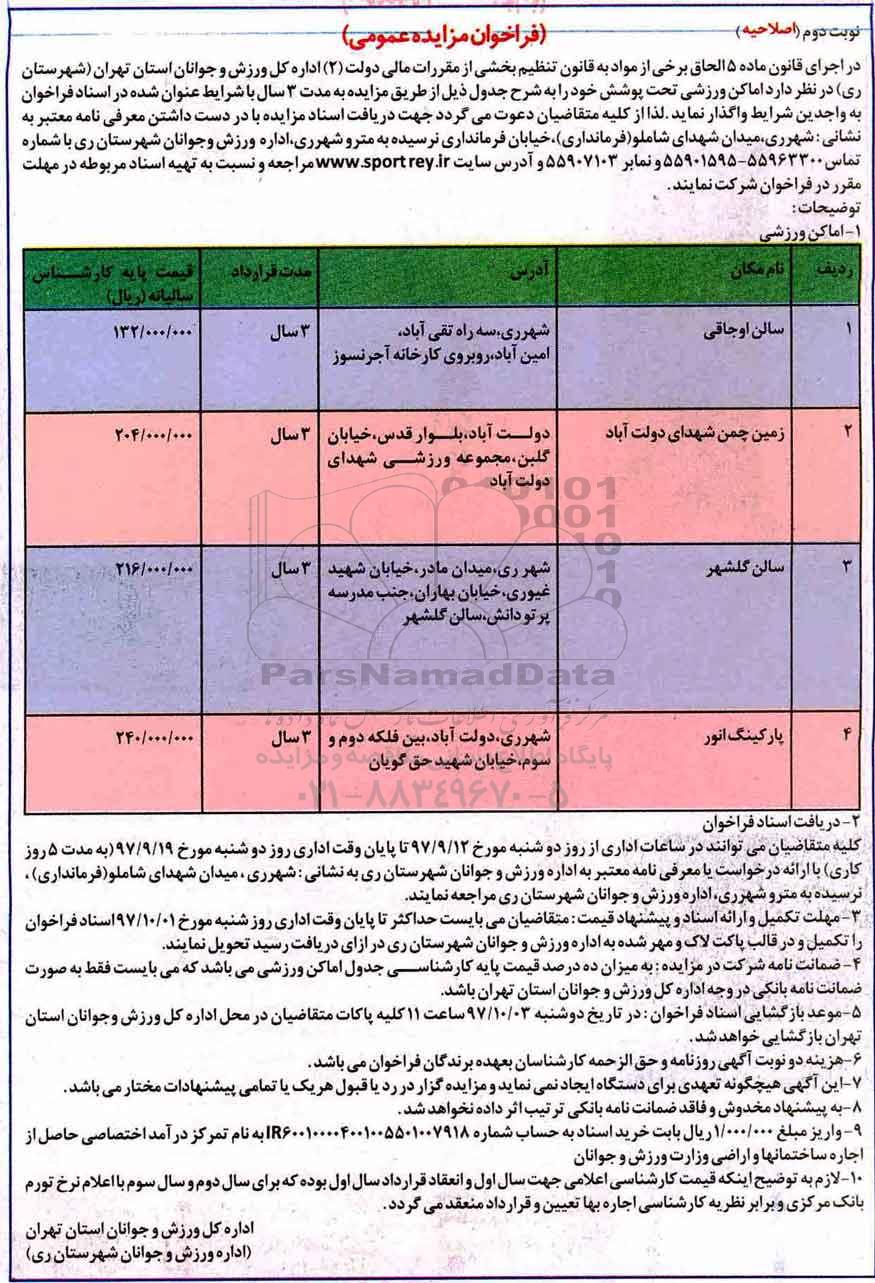 نوبت دوم (اصلاحیه)
(فراخوان مزایده عمومی)
در اجرای قانون ماده ۵ الحاق برخی از مواد به قانون تنظیم بخشی از مقررات مالی دولت (۲) اداره کل ورزش و جوانان استان تهران (شهرستان
ری) در نظر دارد اماکن ورزشی تحت پوشش خود را به شرح جدول ذیل از طریق مزایده به مدت ۳ سال با شرایط عنوان شده در اسناد فراخوان
به واجدین شرایط واگذار نماید .لذا از کلیه متقاضیان دعوت می گردد جهت دریافت اسناد مزایده با در دست داشتن معرفی نامه معتبر به
نشانی : شهرری،میدان شهدای شاملو(فرمانداری)،خیابان فرمانداری نرسیده به مترو شهرری،اداره ورزش وجوانان شهرستان ری با شماره
تماس ۵۵۹۶۳۳۰۰-۵۵۹۰۱۵۹۵ و نمابر ۵۵۹۰۷۱۰۳ و آدرس سایت www.sportrey.ir مراجعه و نسبت به تهیه اسناد مربوطه در مهلت
مقرر در فراخوان شرکت نمایند .
توضیحات :
۱-اماکن ورزشی
ردیف نام مکان آدرس مدت قرارداد قیمت پایه کارشناس
سالیانه (ریال)
۱ سالن اوجاقی شهرری،سه راه تقی آباد، ۳ سال ۱۳۲/۰۰۰/۰۰۰
امین آباد،روبروی کارخانه آجرنسوز
۲ زمین چمن شهدای دولت آباد دولت آباد،بلوار قدس،خیابان ۳ سال ۲۰۴/۰۰۰/۰۰۰
گلبن،مجموعه ورزشی شهدای
دولت آباد
۳ سالن گلشهر شهر ری،میدان مادر،خیابان شهید ۳ سال ۲۱۶/۰۰۰/۰۰۰
غیوری،خیابان بهاران،جنب مدرسه
پرتو دانش،سالن گلشهر
ParsNamadData
۴ پارکینگ انور شهرری،دولت آباد،بین فلکه دوم و ۳ سال ۲۴۰/۰۰۰/۰۰۰
سوم،خیابان شهید حق گویان
۰۲۱-۸۸۳۴۹۶۷۰-۵
۲- دریافت اسناد فراخوان
کلیه متقاضیان می توانند در ساعات اداری از روز دو شنبه مورخ ۹۷/۹/۱۲ تا پایان وقت اداری روز دو شنبه مورخ ۹۷/۹/۱۹ (به مدت ۵ روز
کاری) با ارائه درخواست یا معرفی نامه معتبر به اداره ورزش و جوانان شهرستان ری به نشانی : شهرری ، میدان شهدای شاملو(فرمانداری) ،
نرسیده به مترو شهرری، اداره ورزش و جوانان شهرستان ری مراجعه نمایند.
۳-مهلت تکمیل و ارائه اسناد و پیشنهاد قیمت : متقاضیان می بایست حداکثر تا پایان وقت اداری روز شنبه مورخ ۹۷/۱۰/۰۱ اسناد فراخوان
را تکمیل و در قالب پاکت لاک و مهر شده به اداره ورزش و جوانان شهرستان ری در ازای دریافت رسید تحویل نمایند.
۴- ضمانت نامه شرکت در مزایده : به میزان ده درصد قیمت پایه کارشناسی جدول اماکن ورزشی می باشد که می بایست فقط به صورت
ضمانت نامه بانکی در وجه اداره کل ورزش و جوانان استان تهران باشد.
۵-موعد بازگشایی اسناد فراخوان : در تاریخ دوشنبه ۹۷/۱۰/۰۳ ساعت ۱۱ کلیه پاکات متقاضیان در محل اداره کل ورزش وجوانان استان
تهران بازگشایی خواهد شد.
۶-هزینه دو نوبت آگهی روزنامه و حق الزحمه کارشناسان بعهده برندگان فراخوان می باشد.
۷-این آگهی هیچگونه تعهدی برای دستگاه ایجاد نمی نماید و مزایده گزار در رد یا قبول هریک یا تمامی پیشنهادات مختار می باشد.
۸-به پیشنهاد مخدوش و فاقد ضمانت نامه بانکی ترتیب اثر داده نخواهد شد.
۹- واریز مبلغ ۱/۰۰۰/۰۰۰ ریال بابت خرید اسناد به حساب شماره IR۶۰۰۱۰۰۰۰۴۰۰۱۰۰۵۵۰۱۰۰۷۹۱۸ به نام تمرکز درآمد اختصاصی حاصل از
اجاره ساختمانها و اراضی وزارت ورزش و جوانان
۱۰-لازم به توضیح اینکه قیمت کارشناسی اعلامی جهت سال اول و انعقاد قرارداد سال اول بوده که برای سال دوم و سال سوم با اعلام نرخ تورم
بانک مرکزی و برابر نظریه کارشناسی اجاره بها تعیین و قرارداد منعقد می گردد.
اداره کل ورزش و جوانان استان تهران
(اداره ورزش و جوانان شهرستان ری)